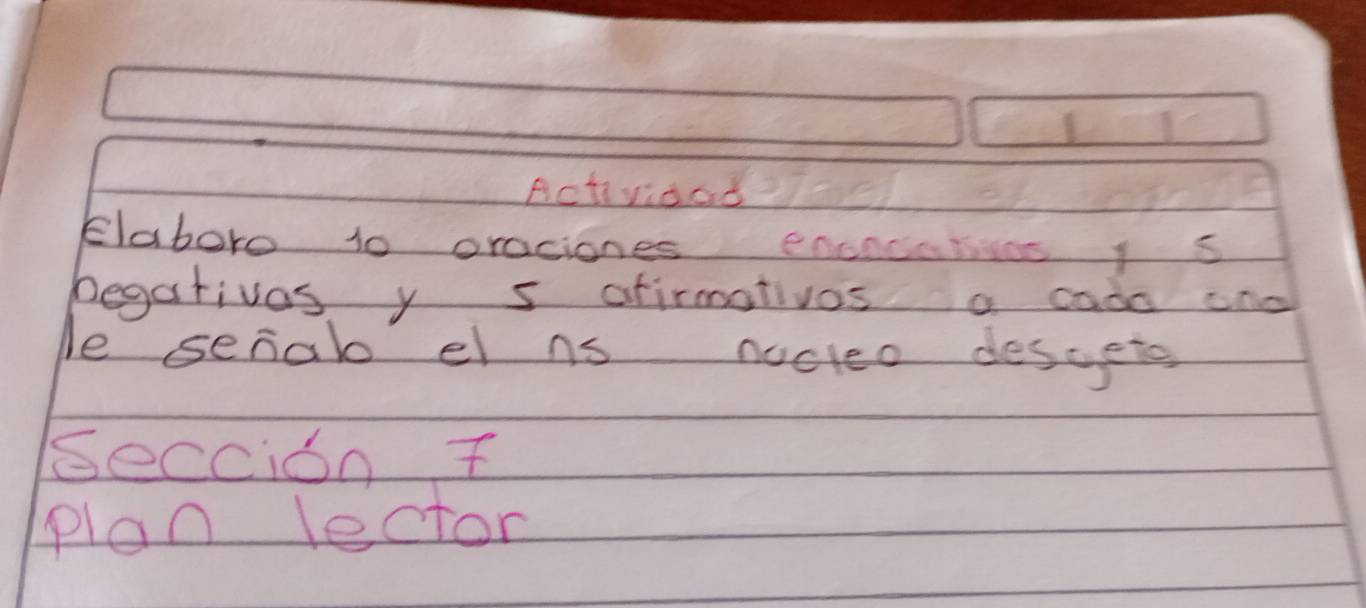 Actividad
Elaboro 10 oraciones enunciativas y 5
negativas y 5 afirmativos a cada una
le señalo el ns nucleo desujeto
Sección 7
plan lector